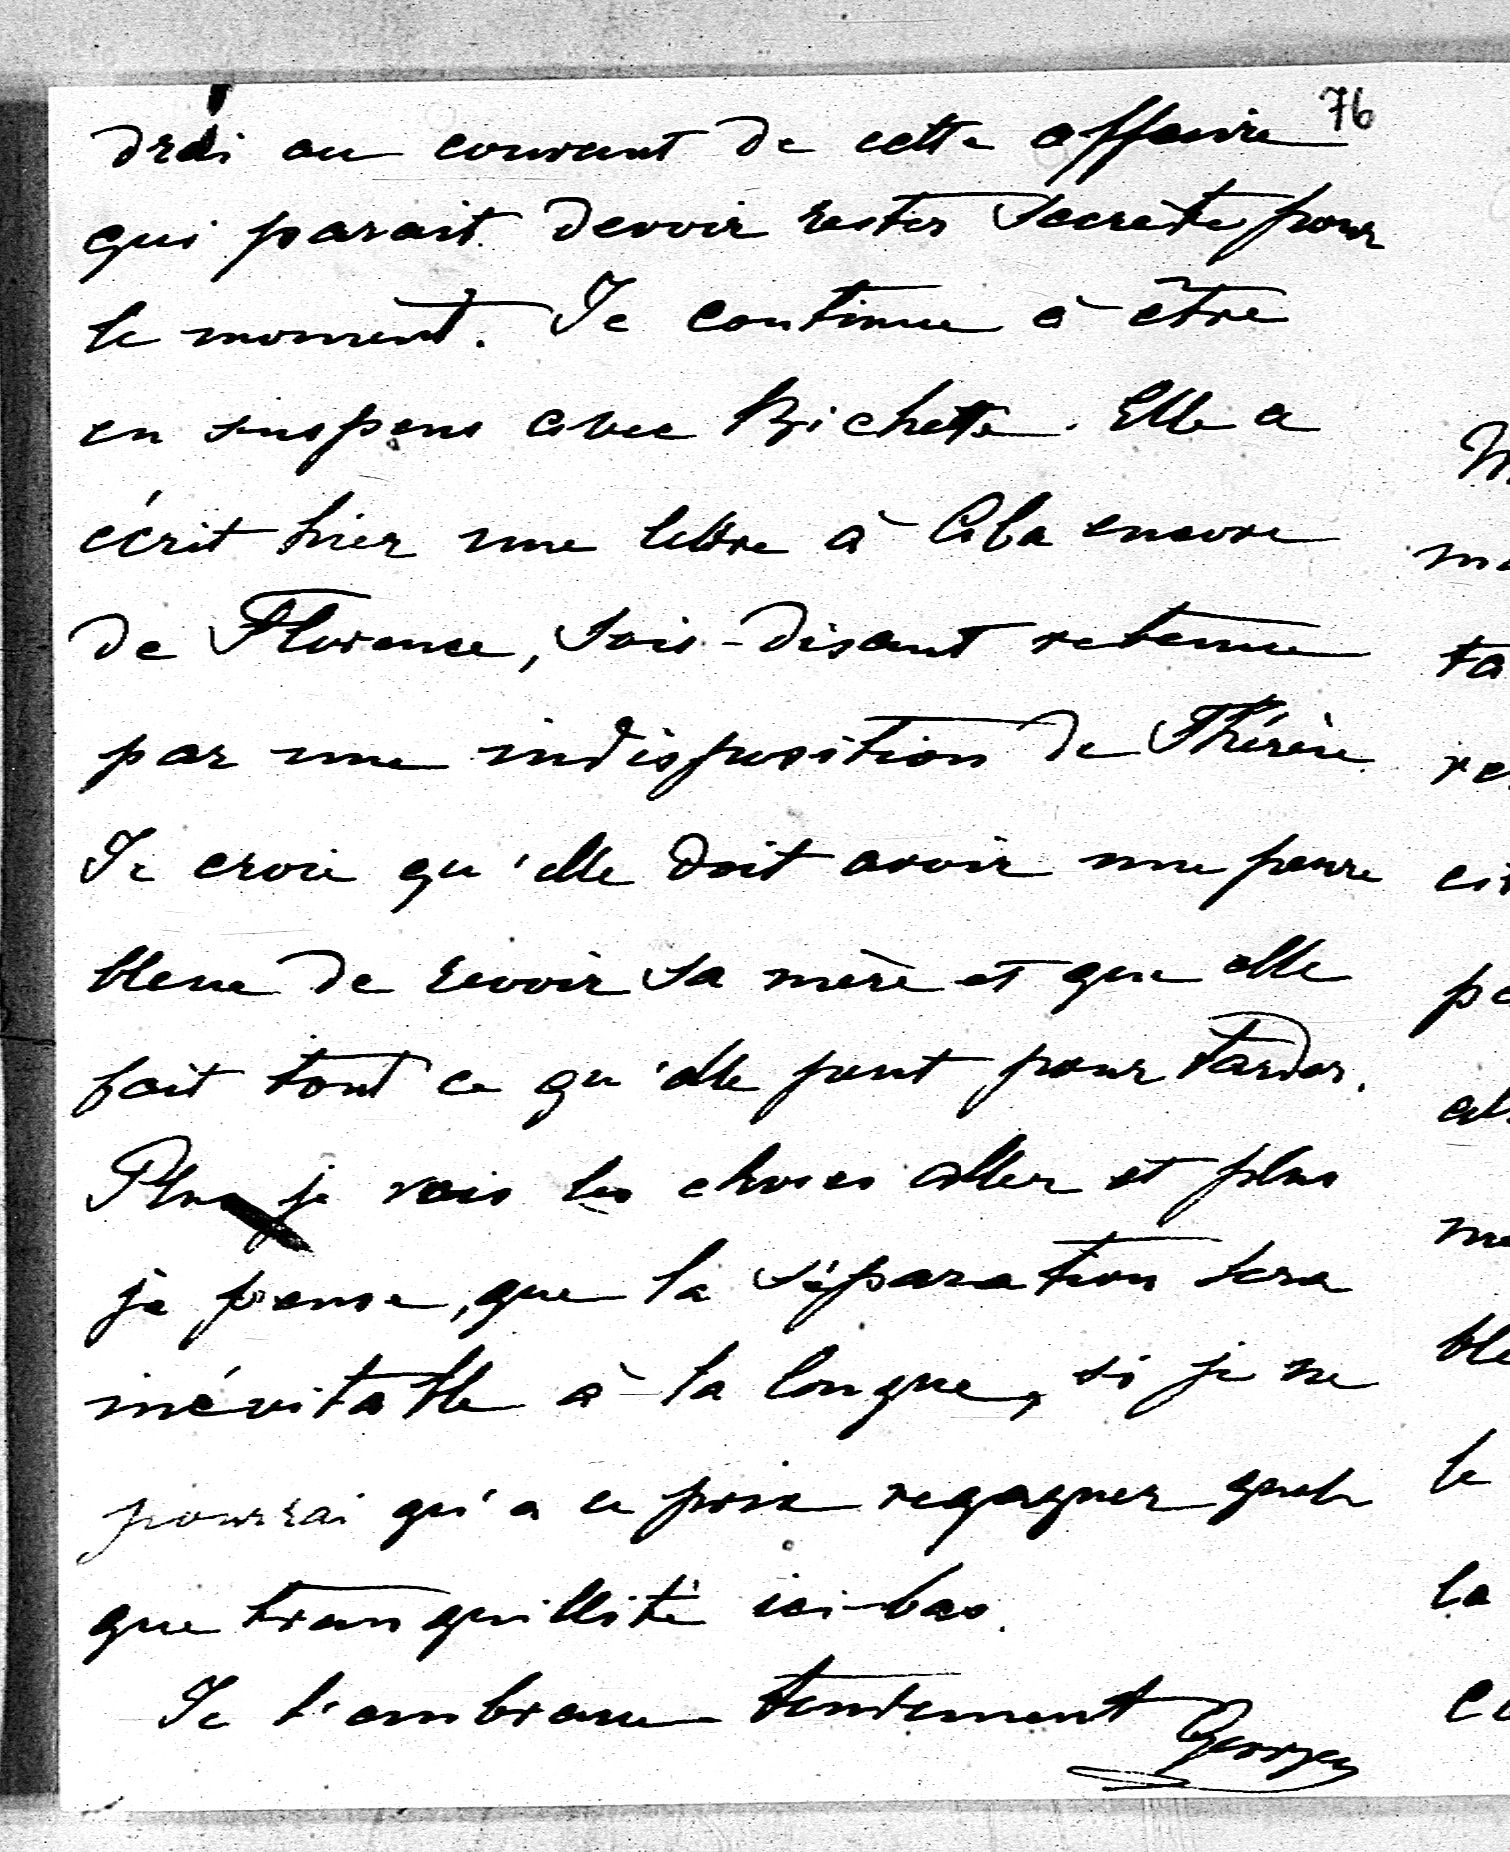 76
drai au courant de cette affaire
qui parait devoir rester secrète pour
le moment. Je continue à être
en suspens avec Bichette. Elle a
écrit hier une lettre à encore
de Florence, sois-disant retenue
par une indisposition de Thérèse.
Je crois qu'elle doit avoir une peure
bleue de revoir sa mère et que elle
fait tout ce qu'elle peut pour tarder.
Plus je vois les choses aller et plus
je pense, que la séparation sera
inévitable à la longue, si je ne
pourrai qu'a ce prix regagner quel-
que tranquillité ici-bas.
Je t'embrasse tendrement
Georges